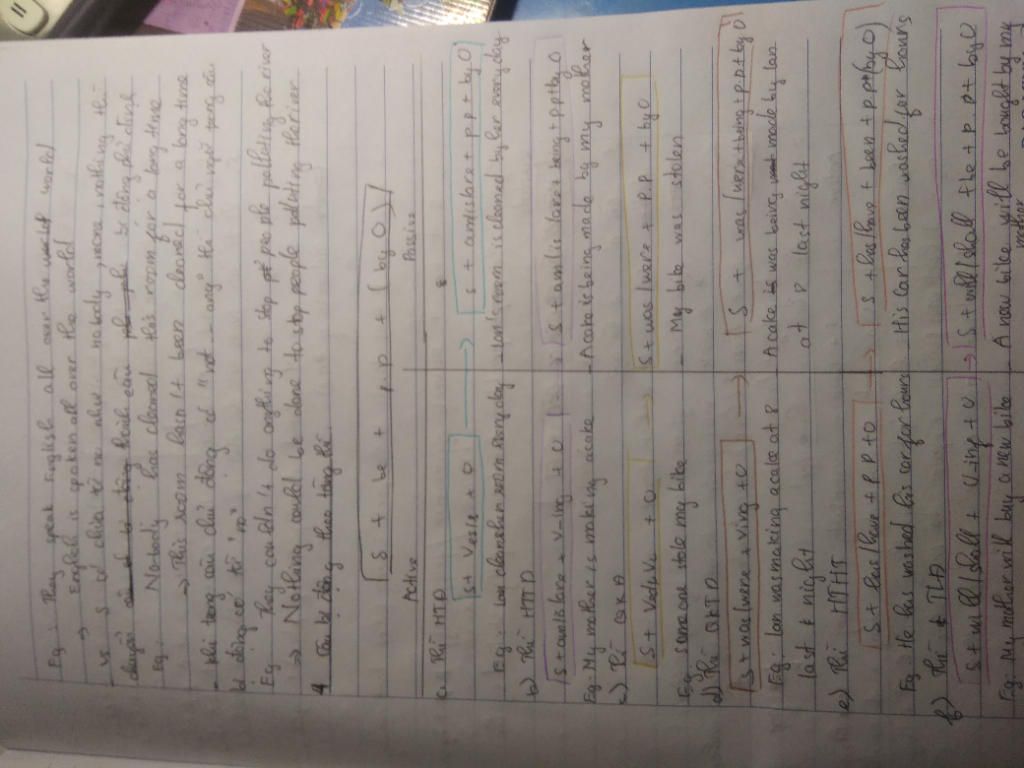 Eg: They speak English all over the world
⇒ English is spoken all over the world
Vs S có chứa từ n như nobody, none nothing thì
chuyển câu bị động phủ định
Eg: Nobody has cleaned this room for a long time
→ This room hasn't been cleaned for a long time
- Khi trong câu chủ động có "not - any" thì chủ ngữ trong câu
bị động có từ "no"
Eg They couldn't do anything to stop people polluting the river
⇒ Nothing could be done to stop people polluting the river
4 Câu bị động theo từng thì
S + be + pp + (by O)
Active Passive
a. Thì HTD
S + Vs/es + O → S + am/is/are + pp + by O
Eg: Lan cleans her room every day - Lan's room is cleaned by her every day
b) Thì HTTD
S + am/is/are + V-ing + O → S + am/is/are + being + pp + by O
Eg My mother is making a cake - A cake is being made by my mother
c) Thì QKD
S + Ved/V2 + O → S + was/were + P.P + by O
Eg: Someone stole my bike - My bike was stolen
d) Thì QKTD
S + was/were + Ving + O → S + was/were + being + p.p + by O
Eg. Lan was making a cake at 8 - A cake was being made by Lan
last night at 8 last night
e) Thì HTHT
S + has/have + P.P + O → S + has/have + been + p.p + (by O)
Eg He has washed his car for hours - His car has been washed for hours
f) Thì TLD
S + will/shall + V-inf + O → S + will/shall + be + p.p + by O
Eg: My mother will buy a new bike - A new bike will be bought by my
mother